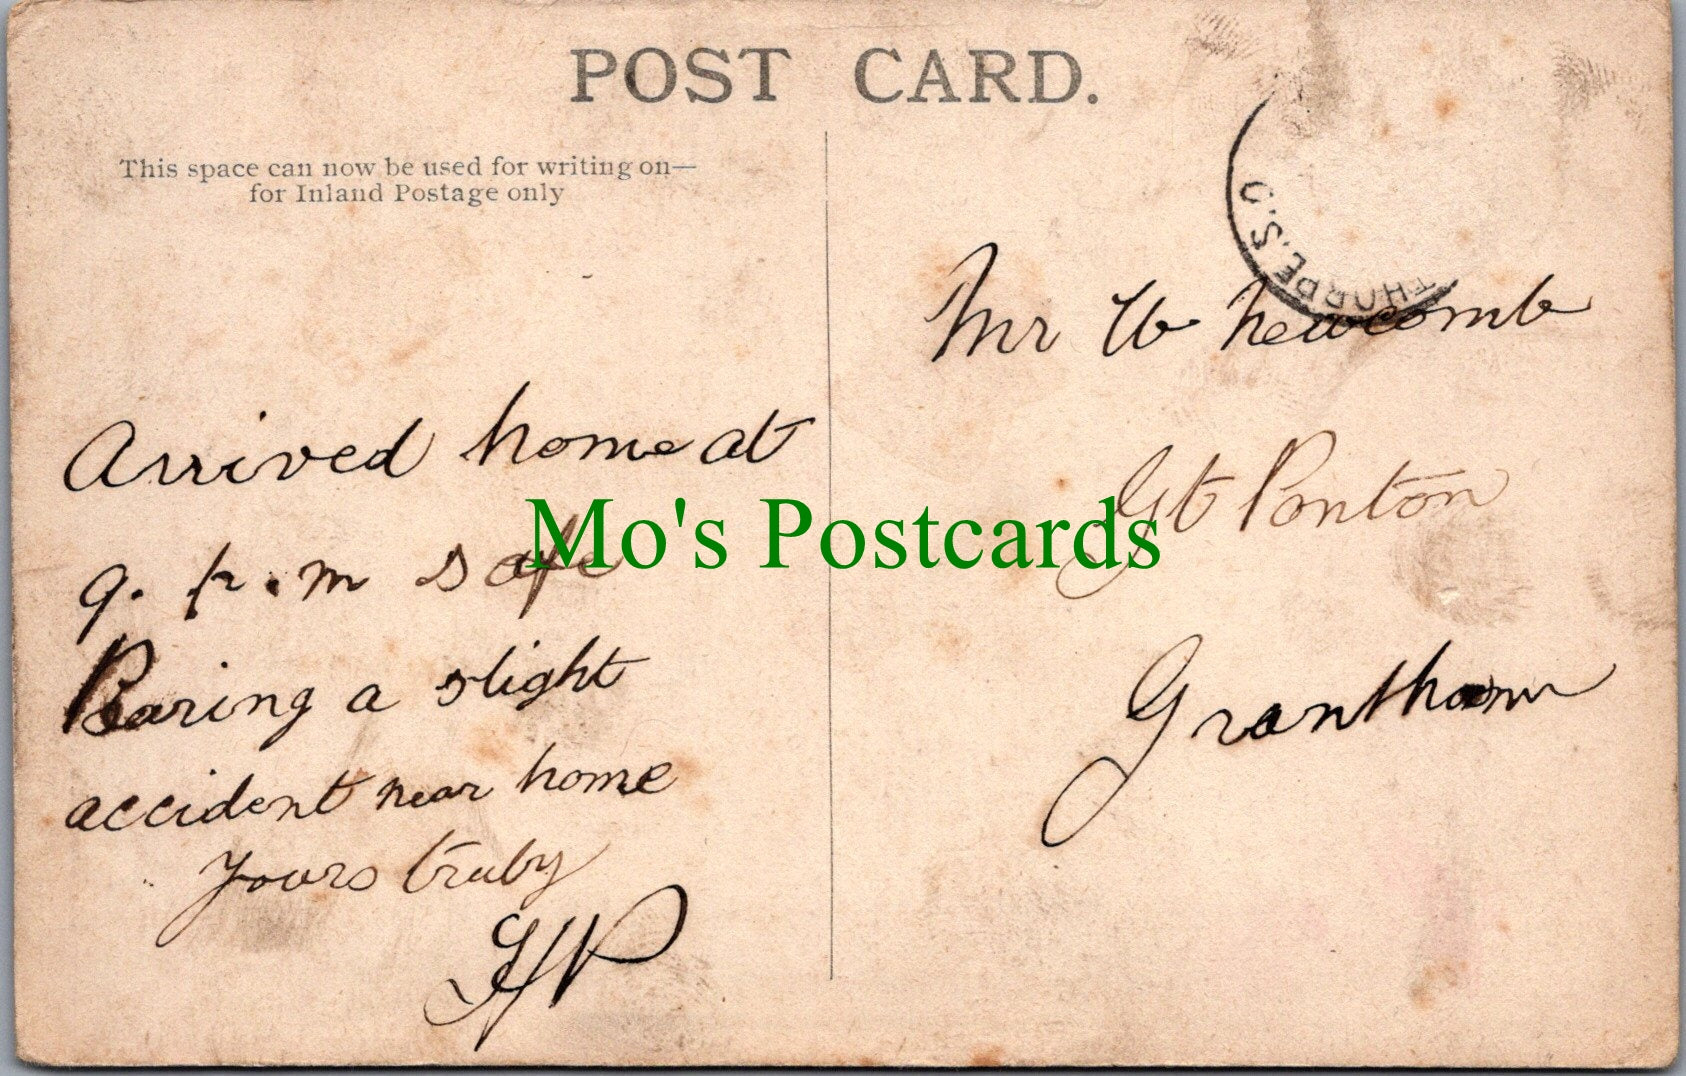 POST CARD.
This space can now be used for writing on—
for Inland Postage only
THORPE.S.O
Mr W Newcomb
Gt Ponton
Grantham
Arrived home at
9. p.m safe
Baring a slight
accident near home
Yours truly
Mo's Postcards